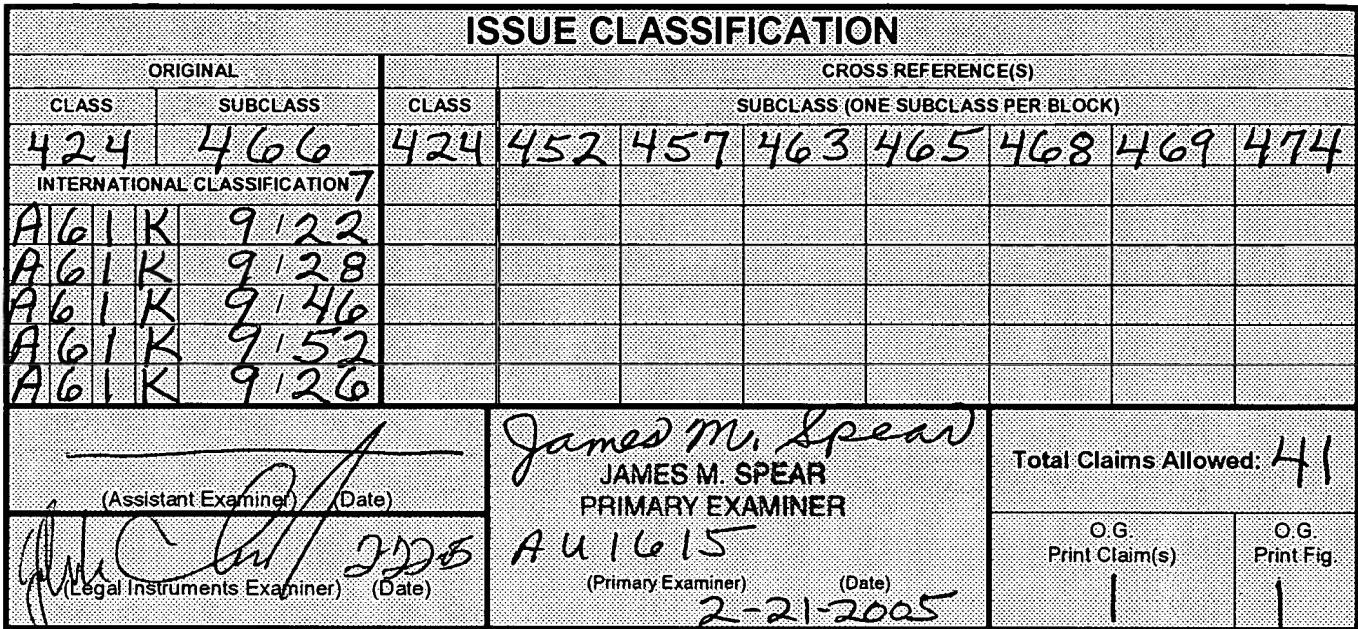 ISSUE CLASSIFICATION
ORIGINAL CROSS REFERENCE(S)
CLASS SUBCLASS CLASS SUBCLASS (ONE SUBCLASS PER BLOCK)
424 466 424 452 457 463 465 468 469 474
INTERNATIONAL CLASSIFICATION 7
A 6 1 K 9 / 22
A 6 1 K 9 / 28
A 6 1 K 9 / 46
A 6 1 K 9 / 52
A 6 1 K 9 / 26
(Assistant Examiner) (Date)
(Legal Instruments Examiner) (Date)
James M. Spear
JAMES M. SPEAR
PRIMARY EXAMINER
AU 1615
(Primary Examiner) (Date)
2-21-2005
Total Claims Allowed: 41
O.G. Print Claim(s)
1
O.G. Print Fig.
1